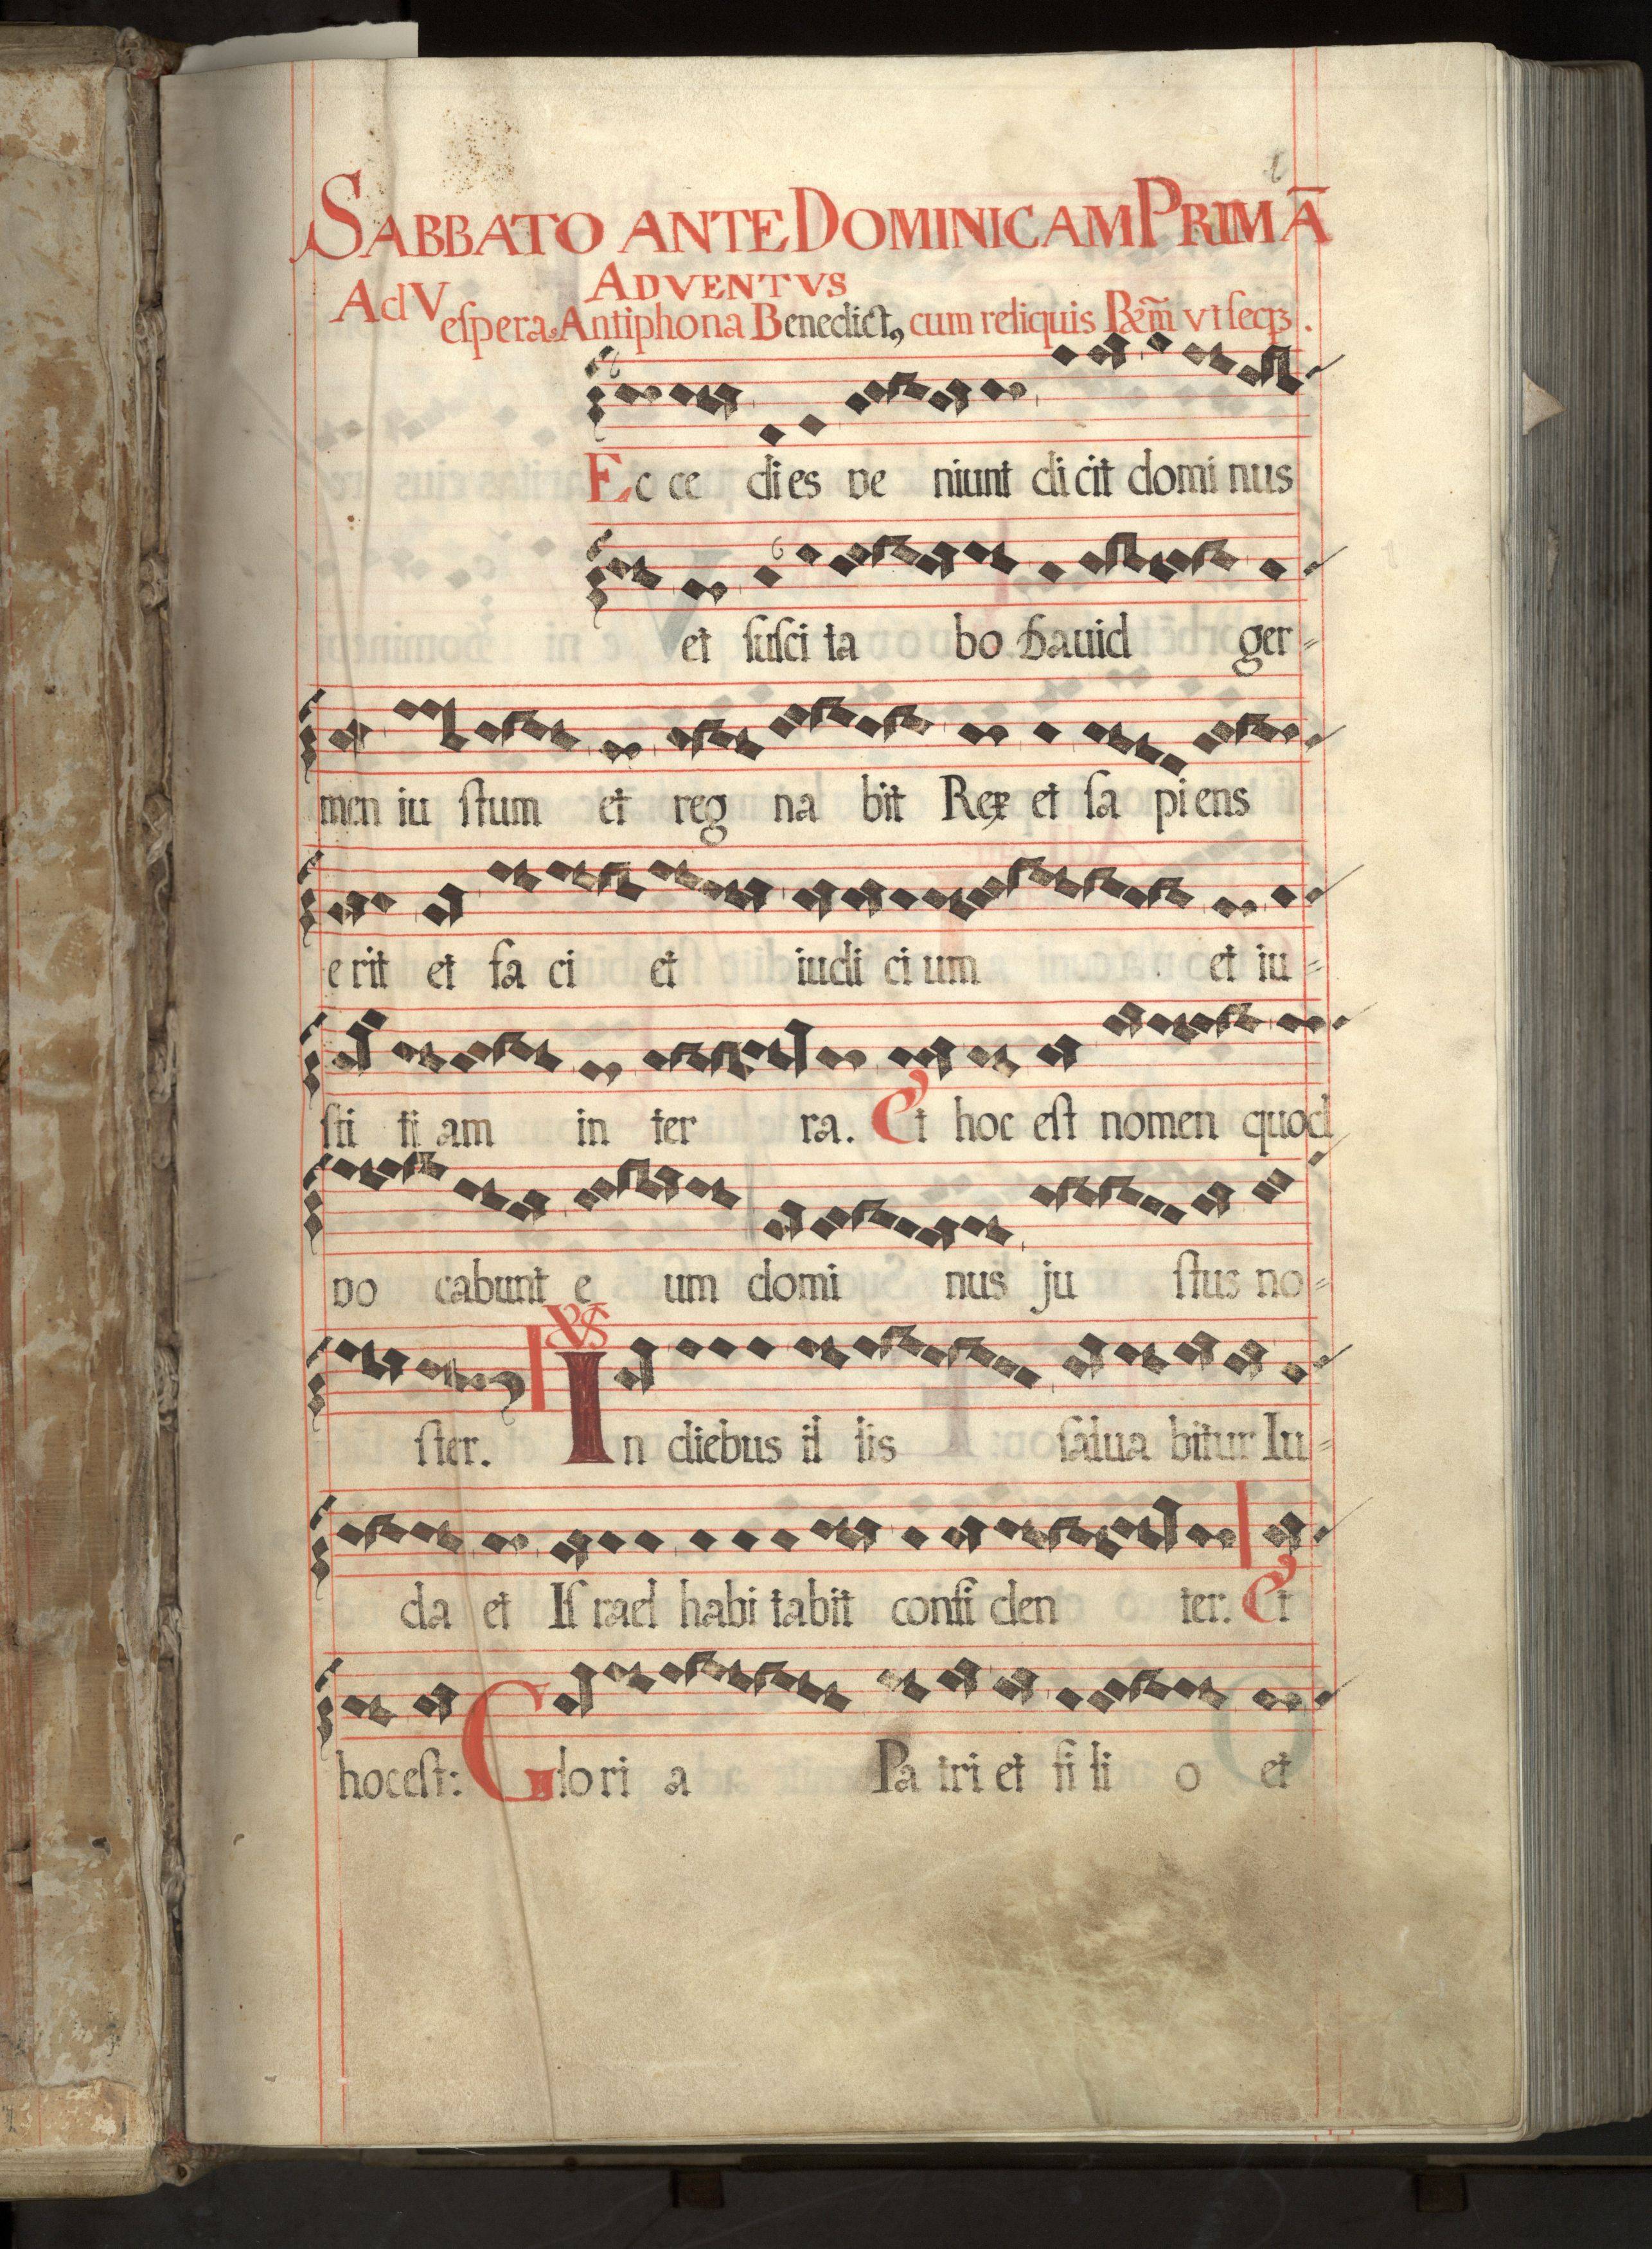 SABBATO ANTE DOMINICAM PRIMĀ
ADVENTVS
Ad Veſpera, Antiphona Benedict, cum reliquis ut ſeqꝫ.
Ec ce dies ve niunt di cit domi nus
et ſuſci ta bo Dauid ger=
men iu ſtum et reg na bit Rex et ſa piens
e rit et fa ci et iudi ci um et iu=
ſti ti am in ter ra. Et hoc est nomen quod
vo cabunt e um domi nus ju ſtus no=
V̸S
ſter. In diebus il lis ſalua bitur Iu=
da et Iſ rael habi tabit confi den ter. Et
hoc eſt: Glo ri a Pa tri et fi li o et